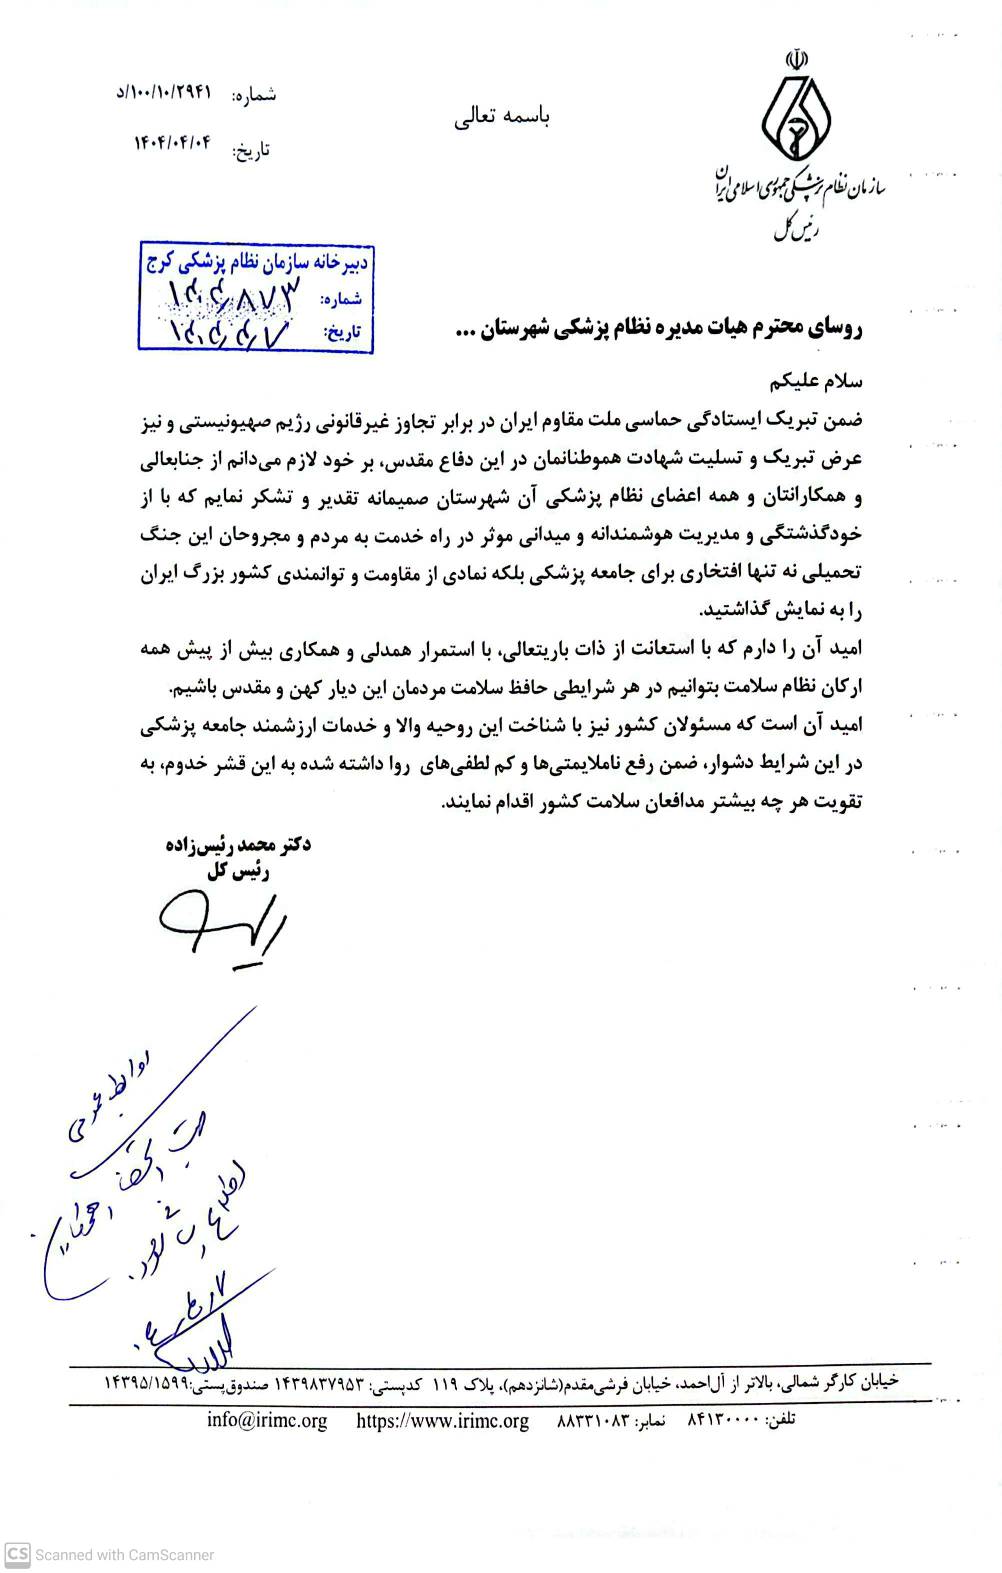 باسمه تعالی
شماره: ۱۰۰/۱۰/۲۹۴۱/د
تاریخ: ۱۴۰۴/۰۴/۰۴
سازمان نظام پزشکی جمهوری اسلامی ایران
رئیس کل
دبیرخانه سازمان نظام پزشکی کرج
شماره:
تاریخ:
روسای محترم هیات مدیره نظام پزشکی شهرستان ...
سلام علیکم
ضمن تبریک ایستادگی حماسی ملت مقاوم ایران در برابر تجاوز غیرقانونی رژیم صهیونیستی و نیز
عرض تبریک و تسلیت شهادت هموطنانمان در این دفاع مقدس، بر خود لازم می‌دانم از جنابعالی
و همکارانتان و همه اعضای نظام پزشکی آن شهرستان صمیمانه تقدیر و تشکر نمایم که با از
خودگذشتگی و مدیریت هوشمندانه و میدانی موثر در راه خدمت به مردم و مجروحان این جنگ
تحمیلی نه تنها افتخاری برای جامعه پزشکی بلکه نمادی از مقاومت و توانمندی کشور بزرگ ایران
را به نمایش گذاشتید.
امید آن را دارم که با استعانت از ذات باریتعالی، با استمرار همدلی و همکاری بیش از پیش همه
ارکان نظام سلامت بتوانیم در هر شرایطی حافظ سلامت مردمان این دیار کهن و مقدس باشیم.
امید آن است که مسئولان کشور نیز با شناخت این روحیه والا و خدمات ارزشمند جامعه پزشکی
در این شرایط دشوار، ضمن رفع ناملایمتی‌ها و کم لطفی‌های روا داشته شده به این قشر خدوم، به
تقویت هر چه بیشتر مدافعان سلامت کشور اقدام نمایند.
دکتر محمد رئیس‌زاده
رئیس کل
روابط عمومی
خیابان کارگر شمالی، بالاتر از آل‌احمد، خیابان فرشی‌مقدم(شانزدهم)، پلاک ۱۱۹ کدپستی: ۱۴۳۹۸۳۷۹۵۳ صندوق‌پستی:۱۴۳۹۵/۱۵۹۹
تلفن: ۸۴۱۳۰۰۰۰ نمابر: ۸۸۳۳۱۰۸۳ https://www.irimc.org info@irimc.org
CS Scanned with CamScanner